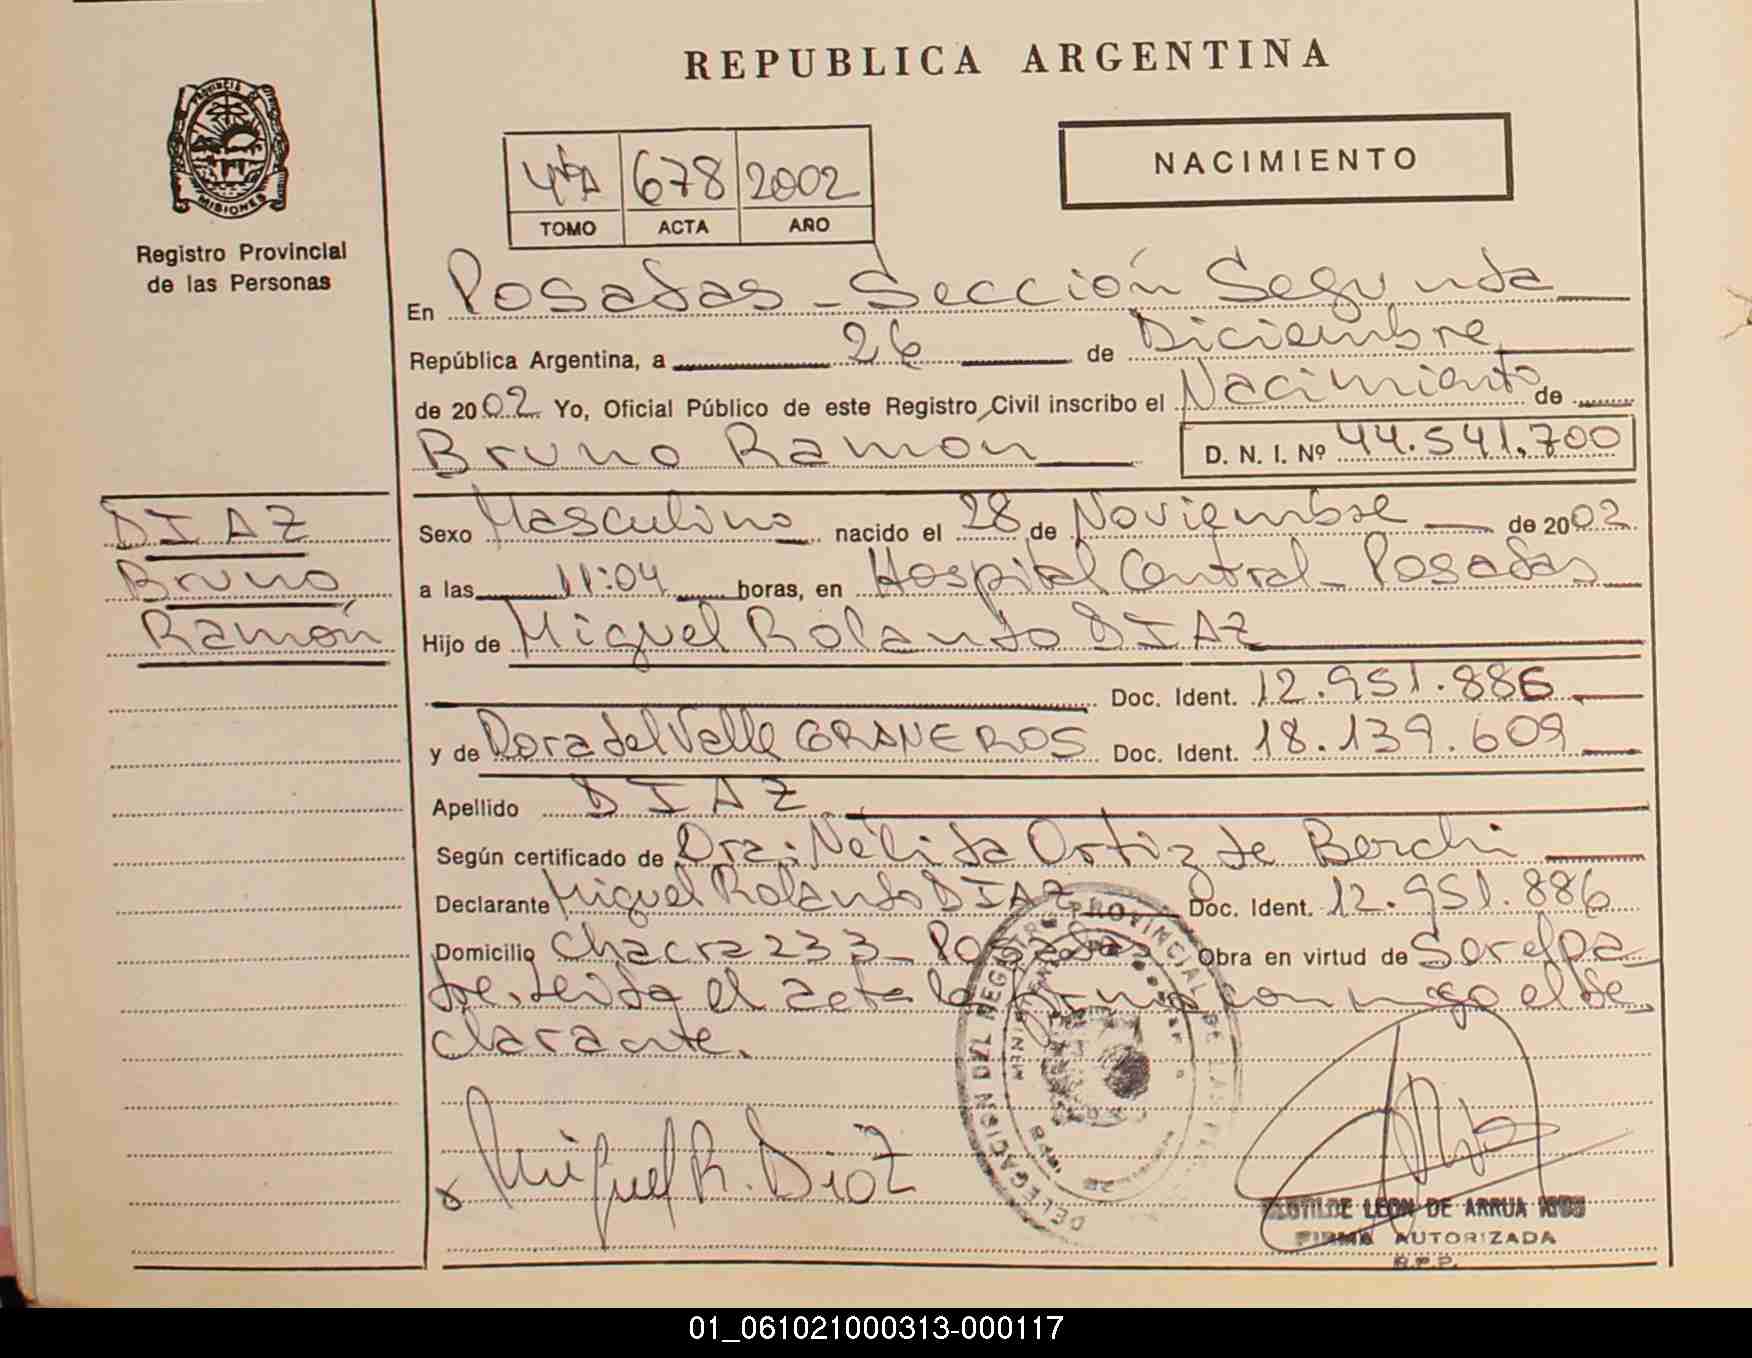 REPUBLICA ARGENTINA
PROVINCIA DE
MISIONES
Registro Provincial
de las Personas
NACIMIENTO
678 2002
TOMO ACTA AÑO
En Posadas - Sección Segunda
República Argentina, a 26 de Diciembre
de 2002 Yo, Oficial Público de este Registro Civil inscribo el Nacimiento de
Bruno Ramón D. N. I. Nº 44.541.700
DIAZ
Bruno
Ramón
Sexo Masculino nacido el 28 de Noviembre de 2002
a las 11:04 horas, en Hospital Central - Posadas
Hijo de Miguel Rolando DIAZ
Doc. Ident. 12.951.886
y de Dora del Valle GRANEROS Doc. Ident. 18.139.609
Apellido DIAZ
Según certificado de Dra. Nélida Ortiz de Berchi
Declarante Miguel Rolando DIAZ Doc. Ident. 12.951.886
Domicilio Chacra 233 - Posadas Obra en virtud de Ser el pa-
dre, leida el acta la firma conmigo el de
clarante.
DELEGACION DEL REGISTRO PROVINCIAL DE LAS
Miguel R. Diaz
LEON DE ARRUA
FIRMA AUTORIZADA
R.P.P.
01_061021000313-000117